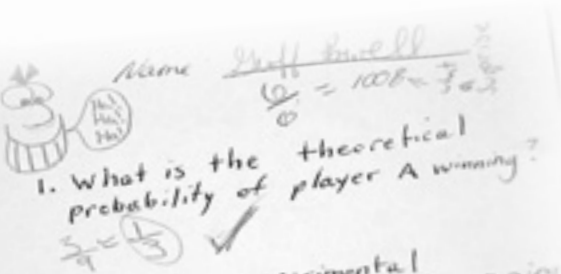 Name
Ha!
Ha!
Ha!
6/6 = 100%
1. What is the theoretical
probability of player A winning?
3/9 = 1/3